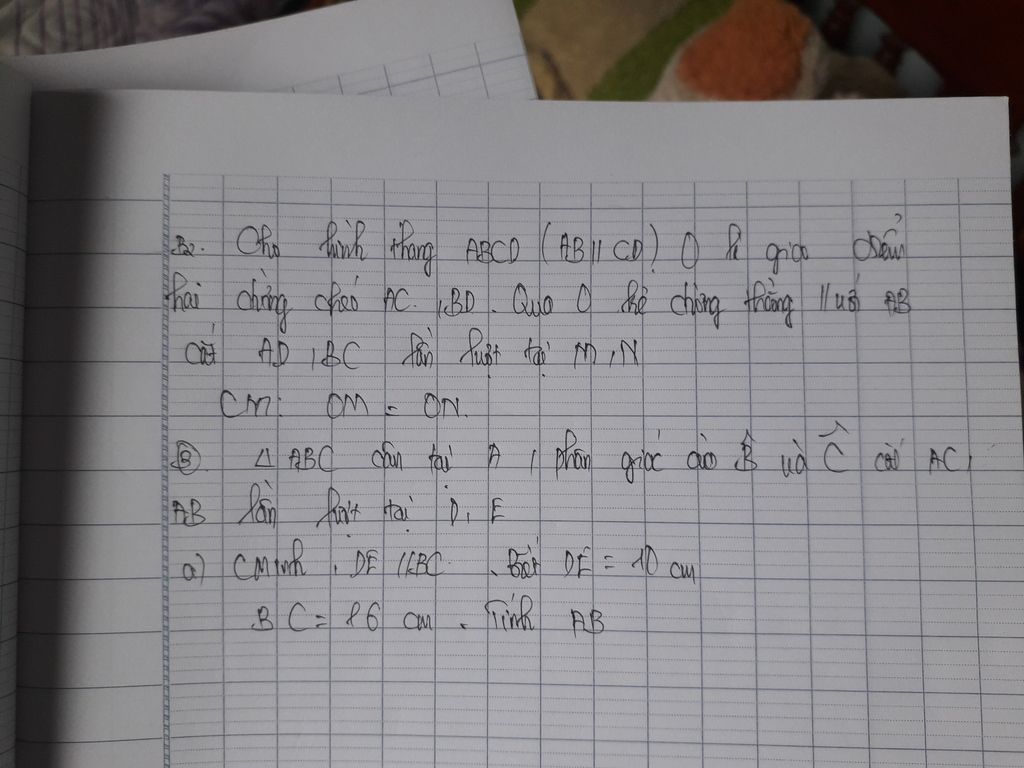 B2. Cho hình thang ABCD (AB // CD) O là giao điểm
hai đường chéo AC, BD. Qua O kẻ đường thẳng // với AB
cắt AD, BC lần lượt tại M, N
CM: OM = ON.
B ∆ ABC cân tại A, phân giác của B̂ và Ĉ cắt AC,
AB lần lượt tại D, E
a) CMinh, DE // BC. Biết DE = 10 cm
BC = 16 cm. Tính AB